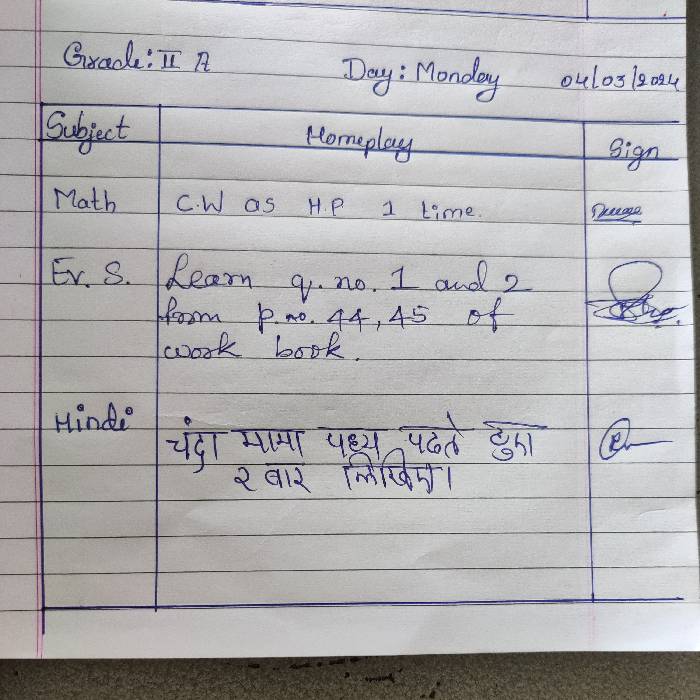 Grade: II A Day: Monday 04/03/2024
Subject Homeplay Sign
Math C.W as H.P 1 time.
Ev. S. Learn q. no. 1 and 2
from p. no. 44, 45 of
work book.
Hindi चंद्रा मामा पध्य पढते हुए
२ बार लिखिए।